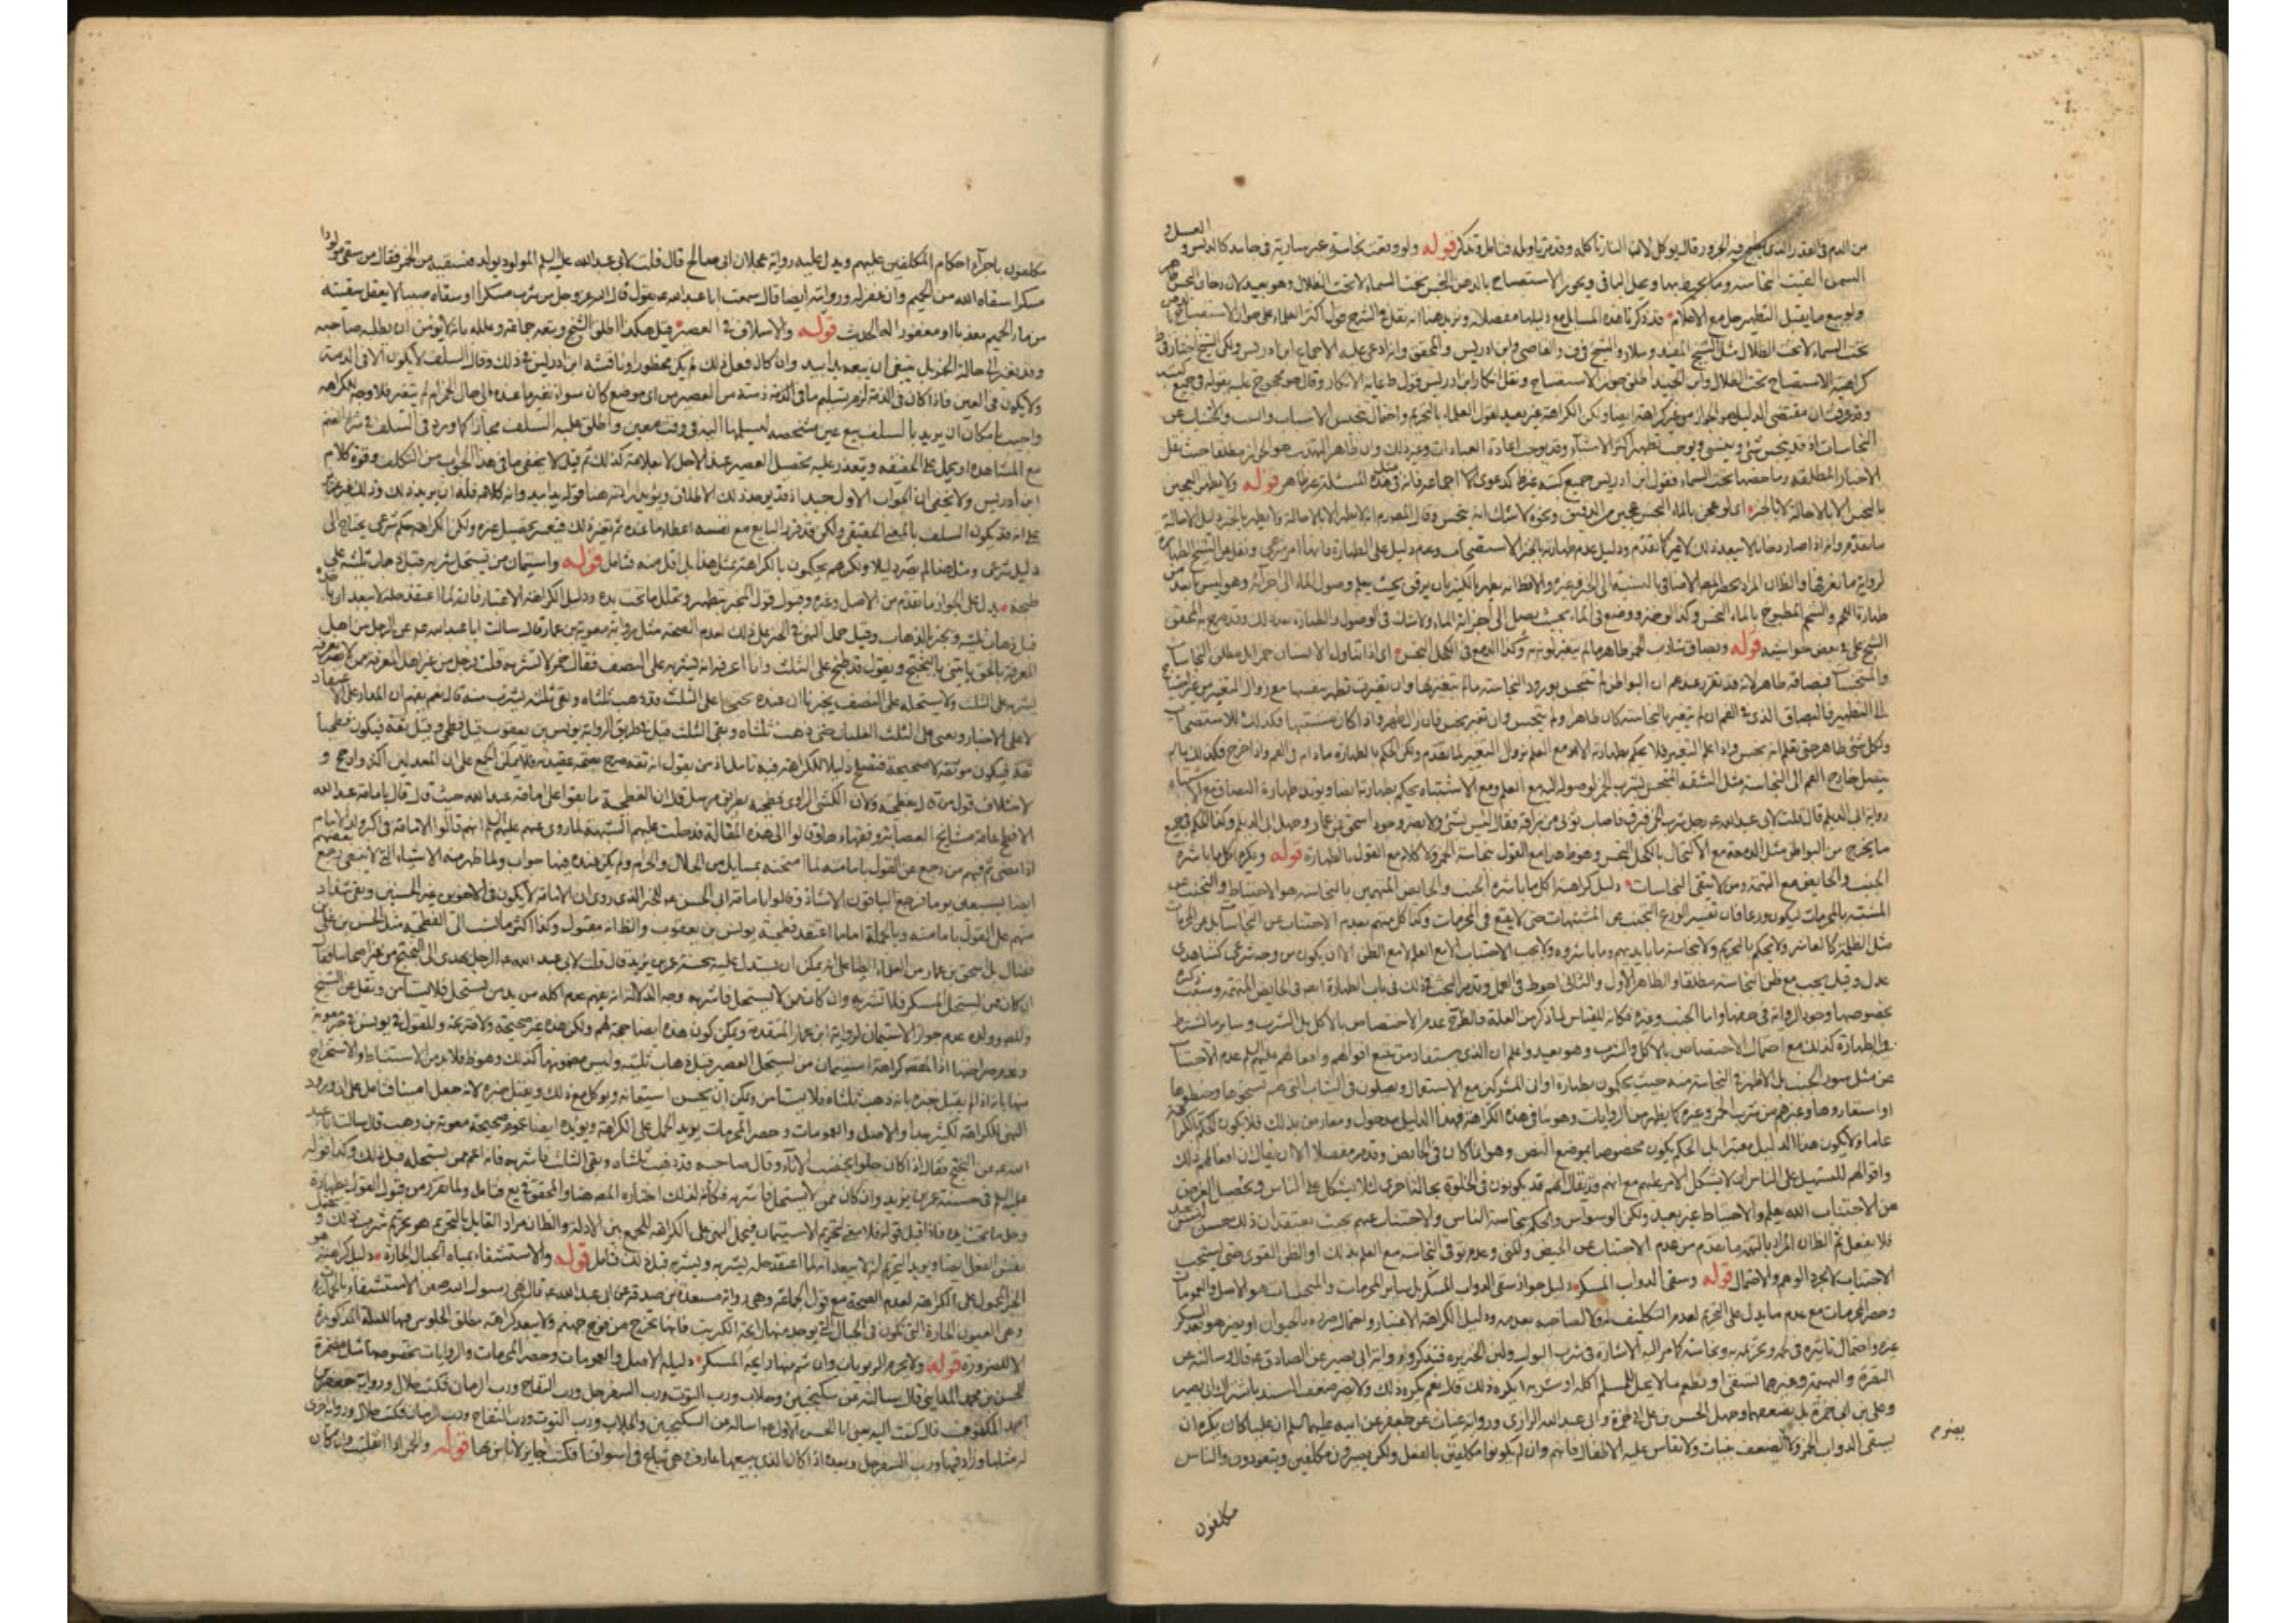 من الدم في القدر الذي يطبخ فيه الجزور قال يؤكل لان النار تأكله وقد مر تاويله فتامل وتذكر قوله ولو وقعت نجاسة غير سارية في جامد كالدبس والعسل و
السمن القيت النجاسة وما يحيط بها ويحل الباقي ويجوز الاستصباح بالدهن النجس تحت السماء لا تحت الظلال وهو بعيد لان دخان النجس طاهر
ولو بيع ما يقبل التطهير حل مع الاعلام قد ذكرنا هذه المسايل مع دليلها مفصلا ونزيد هنا انه نقل في الشرح قول اكثر العلماء على جواز الاستصباح
تحت السماء لا تحت الظلال مثل الشيخ المفيد وسلار والشيخ في ف والقاضي وابن ادريس والمحقق وانه ادعى عليه الاجماع ابن ادريس ولكن الشيخ اختار في ط
كراهية الاستصباح تحت الظلال وابن الجنيد اطلق جواز الاستصباح ونقل انكار ابن ادريس قول ط غاية الانكار وقال هو محجوج عليه بقوله في جميع كتبه
وقد عرفت ان مقتضى الدليل هو الجواز من غير كراهة ايضا ولكن الكراهة غير بعيد لقول العلماء بالتحريم واحتمال تنجس الاسباب والبيت والتجنب عن
النجاسات اذ قد ينجس شئ وينسى ويوجب تطهير اكثر الاشياء وقد يوجب اعادة العبادات وغير ذلك وان ظاهر التهذيب هو الجواز مطلقا حيث نقل
الاخبار المطلقة وما خصها بتحت السماء فقول ابن ادريس جميع كتبه غير ظ كدعوى الاجماع فانه في هذه المسئلة غير ظاهر قوله ولا يطهر العجين
بالنجس الا بالاحالة لا بالخبز اي لو عجن بالماء النجس عجين من الدقيق ونحوه لا شك انه ينجس وقال المصنف انه لا يطهر الا بالاحالة ولا يطهر بالخبز دليل الاحالة
ما تقدم وانه اذا صار دخانا لا يبعد ذلك لا غير كما تقدم ودليل عدم طهارته بالخبز الاستصحاب وعدم دليل على الطهارة فانها امر شرعي ونقل عن الشيخ الطهارة
طهارة اللحم والشحم المطبوخ بالماء النجس وكذا لو خبز ووضع في الماء بحيث يصل الى اجزائه الماء ولا شك في الوصول والطهارة بعد ذلك وقد صرح به المحقق
الشيخ علي في بعض حواشيه قوله وبصاق شارب الخمر طاهر ما لم يتغير لونه به وكذا الدمع في الكحل النجس اي اذا تناول الانسان خمرا بل مطلق النجاسات
والمتنجسات فبصاقه طاهر لانه قد تقرر عندهم ان البواطن لم تنجس بورود النجاسة ما لم تتغير بها وان تغيرت تطهر بنفسها مع زوال التغير من غير احتياج
الى التطهير فالبصاق الذي في الفم ان لم يتغير بالنجاسة كان طاهرا ولم ينجس وان تغير نجس فان زال طهر واذا كان مشتبها فكذلك للاستصحاب
وكل شئ طاهر حتى تعلم انه نجس واذا علم التغير فلا يحكم بطهارته الا مع العلم بزوال التغير لما تقدم ولكن الحكم بالطهارة ما دام في الفم واذا خرج فكذلك ما لم
يتصل خارج الفم الى النجاسة مثل الشفة المتنجس بشرب الخمر لوصوله اليه مع العلم ومع الاشتباه يحكم بطهارته ايضا ويؤيد طهارة البصاق مع الاشتباه
رواية ابي الديلم قال قلت لابي عبد الله ع رجل يشرب الخمر فبزق فاصاب ثوبي من بزاقه فقال ليس بشئ ولا يضر وجود اسحق بن عمار وجهل ابي الديلم وكذا الحكم في جميع
ما يخرج من البواطن مثل الدمعة مع الاكتحال بالكحل النجس وهو ظ هذا مع القول بنجاسة الخمر ولا كلام مع القول بالطهارة قوله ويكره اكل ما باشره
الجنب والحايض مع التهمة ومن لا يتقي النجاسات دليل كراهة اكل ما باشره الجنب والحايض المتهمين بالنجاسة هو الاحتياط والتجنب عن
المشتبه بالمحرمات ليكون ورعا فان تفسير الورع التجنب عن المشتبهات حتى لا يقع في المحرمات وكذا كل متهم بعدم الاجتناب عن النجاسات بل عن المحرمات
مثل الظلمة كالعاشر ولا يحكم بالتحريم ولا نجاسة ما بايديهم وما باشروه ولا يجب الاجتناب الا مع العلم لا مع الظن الا ان يكون من وجه شرعي كشاهدي
عدل وقيل يجب مع ظن النجاسة مطلقا والظاهر الاول والثاني احوط في العمل وتقدم البحث في ذلك في باب الطهارة
بخصوصها وجود الرواية في خصوصها واما الجنب وغيره فكانه للقياس لما ذكر من العلة فالظ عدم الاختصاص بالاكل بل الشرب وسائر ما يشترط
فيه الطهارة كذلك مع احتمال الاختصاص بالاكل والشرب وهو بعيد واعلم ان الذي يستفاد من تتبع اقوالهم وافعالهم عليهم السلم عدم الاجتناب
عن مثل سؤر الجنب بل الاظهر في النجاسة منه حيث يحكمون بطهارة اواني المشركين مع الاستعمال ويصلون في الثياب التي هم نسجوها وخيطوها
او استعاروها وغيرهم من شرب الخمر وغيره كما يظهر من الروايات وهو ينافي هذه الكراهة فهذا الدليل مدخول ومعارض بذلك فلا يكون الحكم بالكراهة
عاما ولا يكون هذا الدليل معتبرا بل الحكم يكون مخصوصا بموضع النص وهو انما كان في الحايض وقد مر مفصلا الا ان يقال ان افعالهم ذلك
واقوالهم للتسهيل على الناس ان لا يشكل الامر عليهم مع انهم قد يقال انهم قد يكونون في الخلوة بحالة اخرى لئلا يشكل على الناس ويحصل الغرض
من الاجتناب الله يعلم والاحتياط غير بعيد ولكن الوسواس والحكم بنجاسة الناس والاجتناب عنهم بحيث يعتقد ان ذلك حسن ليس بجيد
فلا يفعل ثم الظان المراد بالتهمة ما تقدم من عدم الاجتناب عن الحيض ولكني وعدم توقي النجاسة مع العلم بذلك او الظن القوي حتى يستحب
الاجتناب لا بمجرد الوهم والاحتمال قوله وسقي الدواب المسكر دليل جواز سقي الدواب المسكر بل ساير المحرمات والمتنجسات هو الاصل والعمومات
وحصر المحرمات مع عدم ما يدل على التحريم لعدم التكليف لها ولا لصاحبه بعدمه ودليل الكراهة الاعتبار واحتمال ضرره بالحيوان او يضر هو بعد السكر
غيره واحتمال تاثيره في لحمه وتحريمه ونجاسته كما مر اليه الاشارة في شرب البول ولبن الخنزيرة فتذكر ورواية ابي بصير عن الصادق ع قال وسالته عن
البقرة والبهيمة وغيرهما تسقى او تطعم ما لا يحل للمسلم اكله او شربه ايكره ذلك قال نعم يكره ذلك ولا يضر ضعف السند باشتراك ابي بصير
وعلي بن ابي حمزة بل بضعفهما وجهل الحسن بن علي بن ابي حمزة وابي عبد الله الرازي ورواية غياث عن جعفر عن ابيه عليهما السلم ان عليا كان يكره ان
يسقى الدواب الخمر ولا لضعف بغياث ولا تقاس عليه الاطفال فانهم وان لم يكونوا مكلفين بالفعل ولكن يصيرون مكلفين ويتعودون والناس
يضر م
مكلفون
مكلفون باجراء احكام المكلفين عليهم ويدل عليه رواية عجلان ابي صالح قال قلت لابي عبد الله عليه السلم المولود يولد فنسقيه من الخمر فقال من سقى مولودا
مسكرا سقاه الله من الحميم وان غفر له وروايته ايضا قال سمعت ابا عبد الله ع يقول قال الله عز وجل من شرب مسكرا او سقاه صبيا لا يعقل سقيته
من ماء الحميم معذبا او مغفورا له الحديث قوله والاسلاف في العصير قيل هكذا اطلق الشيخ وتبعه جماعة وعلله بانه لا يؤمن ان يطلبه صاحبه
وقد تغير الى حالة الخمر بل ينبغي ان يبيعه يدا بيد وان كان فعل ذلك لم يكن محظورا وناقشه ابن ادريس في ذلك وقال السلف لا يكون الا في الذمة
ولا يكون في العين فاذا كان في الذمة لزم تسليم ما في الذمة ذمته من العصير من اي موضع كان سواء تغير ما عنده الى حال الخمر ام لم يتغير فلا وجه للكراهة
واجيب بامكان ان يريد بالسلف بيع عين مشخصة ليسلمها اليه في وقت معين واطلق عليه السلف مجازا كما ورد في السلف في مسوك الغنم
مع المشاهدة او يحمل على الحقيقة ويتعذر عليه تحصيل العصير عند الاجل لانقلابه كذلك ثم قيل لا يخفى ما في هذا الجواب من التكلف وقوة كلام
ابن ادريس ولا يخفى ان الجواب الاول جيد اذ قد يوجد ذلك الاطلاق ويؤيد ارادته هنا قوله يدا بيد وانه كلامهم فله ان يريد ذلك
على انه قد يكون السلف بالمعنى الحقيقي ولكن قد قرر البايع مع نفسه اعطاء ما عنده ثم تغير ذلك فيعسر تحصيل غيره ولكن الكراهة حكم شرعي يحتاج الى
دليل شرعي ومثل هذا لم يصر دليلا ولكنهم يحكمون بالكراهة بمثل هذا بل اقل منه فتامل قوله واستيمان من يستحل شربه قبل ذهاب ثلثيه على
طبخه يدل على الجواز ما تقدم من الاصل وغيره وقبول قول المخبر بتطهير وتحليل ما تحت يده ودليل الكراهة الاعتبار فانه لما اعتقد حله لا يبعد ان ياخذه
قبل ذهاب ثلثيه ويخبر بالذهاب وقيل حمل النهي في الخبر على ذلك لعدم الصحة مثل رواية معوية بن عمار قال سالت ابا عبد الله ع عن الرجل من اهل
المعرفة بالحق ياتيني بالبختج ويقول قد طبخ على الثلث وانا اعرفه انه يشربه على النصف فقال خمر لا تشربه قلت فرجل من غير اهل المعرفة ممن لا نعرفه
يشربه على الثلث ولا يستحله على النصف يخبرنا ان عنده بختجا على الثلث قد ذهب ثلثاه وبقي ثلثه يشرب منه قال نعم يفهم ان المدار على الاعتقاد
لا على الاخبار ومعنى على الثلث الغليان حتى ذهب ثلثاه وبقي الثلث قيل في طريق الرواية يونس بن يعقوب قيل فطحي وقيل ثقة فيكون فطحيا
ثقة فيكون موثقة لا صحيحة فتصلح دليلا للكراهة فيه تامل اذ من يقول انه ثقة صرح بصحة عقيدته فلا يمكن الجمع على ان المعدلين اكثر وارجح و
لاختلاف قول من قال بفطحيته ولان الكشي الراوي فطحيته بطريق مرسل قال ان الفطحية ما بقوا على امامة عبد الله حيث قال قال بامامة عبد الله
الافطح عامة مشايخ العصابة وفقهاء مالوا الى هذه المقالة فدخلت عليهم الشبهة لما روي عنهم عليهم السلم انهم قالوا الامامة في الاكبر من ولد الامام
اذا مضى ثم فمنهم من رجع عن القول بامامته لما امتحنه بمسايل من الحلال والحرام ولم يكن عنده فيها جواب ولما ظهر منه الاشياء التي لا ينبغي رجع بعضهم
ايضا بسبعين يوما فرجع الباقون الا شاذ وقالوا بامامة ابي الحسن ع للخبر الذي روي ان الامامة لا يكون في الاخوين غير الحسنين وبقي شاذ
منهم على القول بامامته وبالجملة اما ما اعتقد فطحية يونس بن يعقوب والظ انه مقبول وكذا اكثر ما نسب الى الفطحية مثل الحسن بن علي بن
فضال بل اسحق بن عمار من العلماء ايضا على انه يمكن ان يستدل عليه بحسنة عمر بن يزيد قال قلت لابي عبد الله ع الرجل يهدي الى البختج من غير اصحابنا فقال
ان كان ممن يستحل المسكر فلا تشربه وان كان ممن لا يستحل فاشربه وجه الدلالة انه يفهم عدم اكله من يد من يستحل فلا يستامن ونقل عن الشيخ
والمص وولده عدم جواز الاستيمان لرواية ابن عمار المتقدمة ويمكن كون هذه ايضا حجة لهم ولكن هذه غير صحيحة ولا صريحة والقول في يونس في خبر معوية
وعدم صراحتها اذ المقصد كراهة استيمان من يستحل العصير قبل ذهاب ثلثيه وليس مضمونها كذلك وهو ظ فلا بد من الاستنباط والاستخراج
النهي للكراهة لكثير جدا والاصل والعمومات وحصر المحرمات يؤيد الحمل على الكراهة ويؤيده ايضا عموم صحيحة معوية بن وهب قال سالت ابا عبد
الله ع عن البختج فقال اذا كان حلوا يخضب الاناء وقال صاحبه قد ذهب ثلثاه وبقي الثلث فاشربه فانه اعم ممن يستحله قبل ذلك وكذا قوله
عليه السلم في حسنة عمر بن يزيد وان كان ممن لا يستحل فاشربه فكانه لذلك اختاره المص هنا والمحقق في يع فتامل ولما تقرر من قبول القول بطهارة
وحل ما تحت يده فاذا قبل قوله فلا معنى لتحريم الاستيمان فيحمل النهي على الكراهة للجمع بين الادلة والظ ان مراد القايل بالتحريم هو تحريم شرب ذلك و
نفس الفعل ايضا ويؤيد التحريم انه لا يبعد انه لما اعتقد حله يشربه ويشربه قبل ذلك فتامل قوله والاستشفاء بمياه الجبال الحارة دليل كراهته هو
الخبر المحمول على الكراهة لعدم الصحة مع قول الجماعة وهي رواية مسعدة بن صدقة عن ابي عبد الله ع قال نهى رسول الله ص عن الاستشفاء بالحمات
وهي العيون الحارة التي تكون في الجبال التي يوجد منها رايحة الكبريت فانها تخرج من فوح جهنم ولا يبعد كراهة مطلق الجلوس فيها للعلة المذكورة
الا للضرورة قوله ولا يحرم الربوبات وان شم منها رايحة المسكر دليله الاصل والعمومات وحصر المحرمات والروايات بخصوصها مثل مضمرة
الحسن بن محمد المدايني قال سالته عن سكنجبين وجلاب ورب التوت ورب السفرجل ورب التفاح ورب الرمان فكتب حلال ورواية جعفر بن
احمد المكفوف قال كتبت اليه يعني ابا الحسن الاول ع اساله عن السكنجبين والجلاب ورب التوت ورب التفاح ورب الرمان فكتب حلال ورواية اخرى
له مثلها وزاد فيها ورب السفرجل وبعده اذا كان الذي يبيعها غير عارف وهي تباع في اسواقنا فكتب جايز لا باس بها قوله والخمر اذا انقلبت وان كان